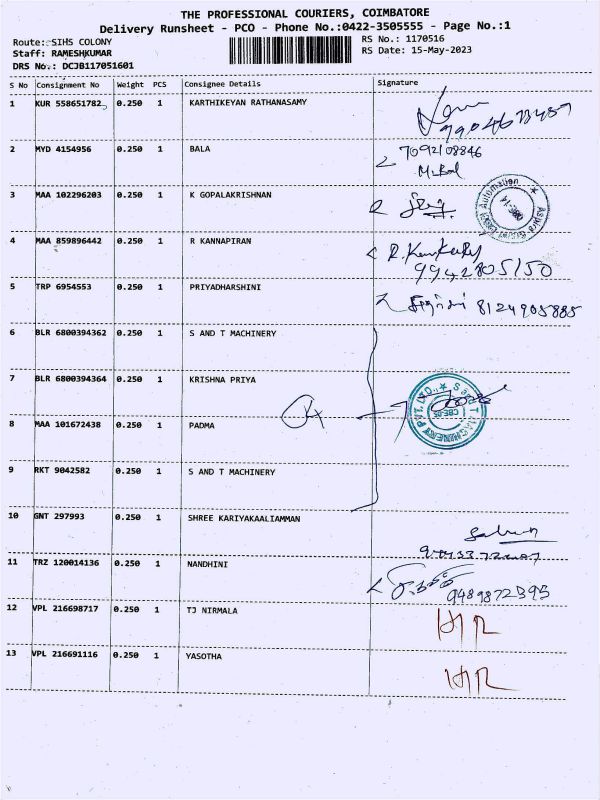 THE PROFESSIONAL COURIERS, COIMBATORE
Delivery Runsheet - PCO - Phone No.:0422-3505555 - Page No.:1
Route: SIHS COLONY
RS No.: 1170516
Staff: RAMESHKUMAR
RS Date: 15-May-2023
DRS No.: DCJB117051601
S No Consignment No Weight PCS Consignee Details Signature
1 KUR 558651782 0.250 1 KARTHIKEYAN RATHANASAMY
2 MYD 4154956 0.250 1 BALA 7092108846
3 MAA 102296203 0.250 1 K GOPALAKRISHNAN
Automation
4 MAA 859896442 0.250 1 R KANNAPIRAN
9942805150
5 TRP 6954553 0.250 1 PRIYADHARSHINI 8124905885
6 BLR 6800394362 0.250 1 S AND T MACHINERY
7 BLR 6800394364 0.250 1 KRISHNA PRIYA
8 MAA 101672438 0.250 1 PADMA
9 RKT 9042582 0.250 1 S AND T MACHINERY
10 GNT 297993 0.250 1 SHREE KARIYAKAALIAMMAN
11 TRZ 120014136 0.250 1 NANDHINI
9489872395
12 VPL 216698717 0.250 1 TJ NIRMALA
13 VPL 216691116 0.250 1 YASOTHA